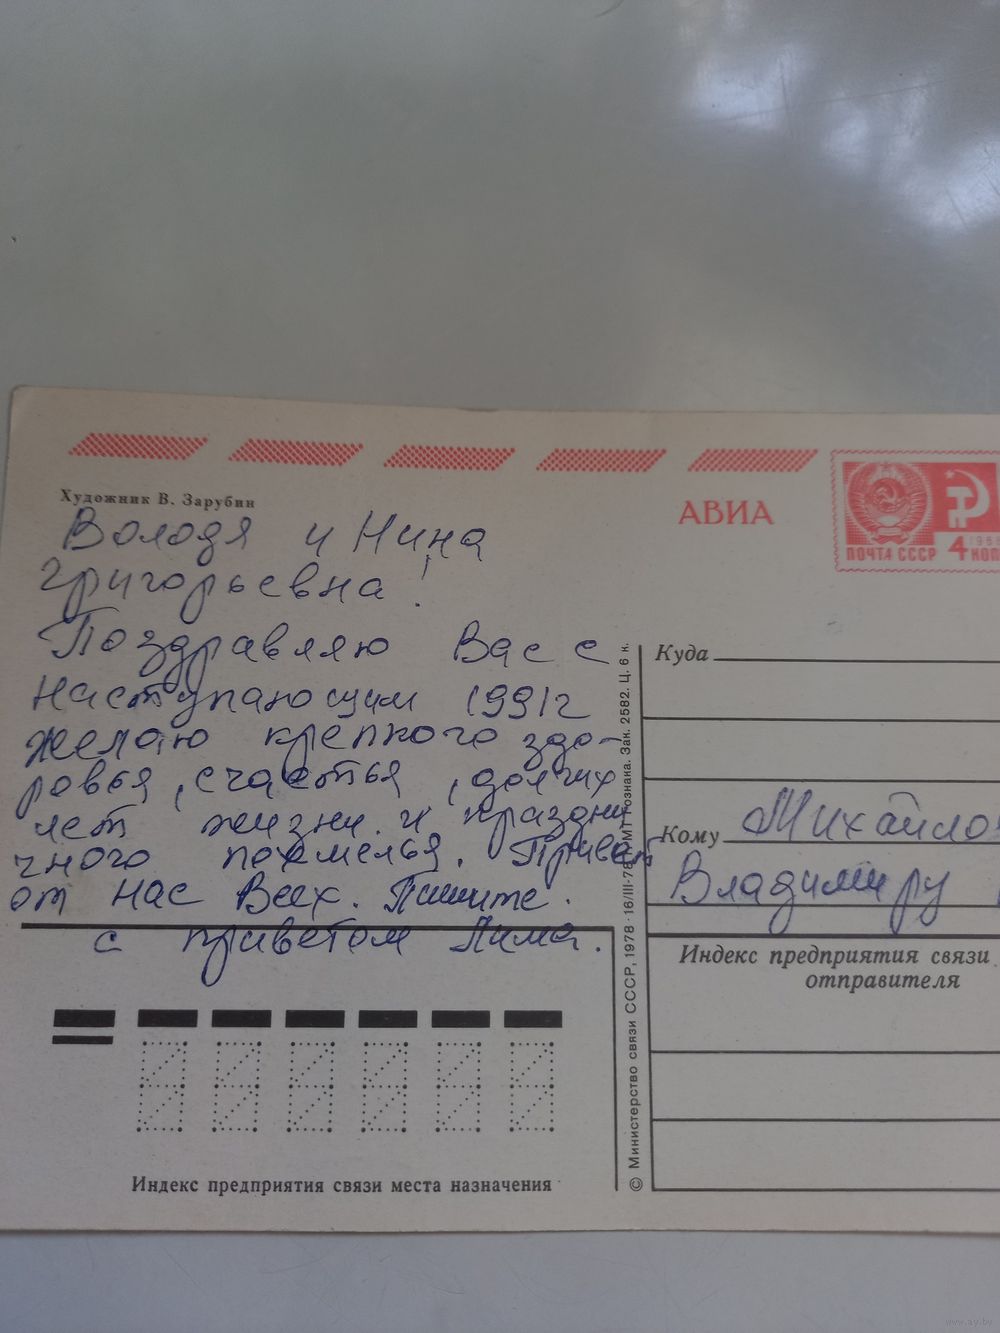 Художник В. Зарубин
Володя и Нина
Григорьевна!
Поздравляю Вас с
наступающим 1991г
желаю крепкого здо-
ровья, счастья, долгих
лет жизни и праздни
чного похмелья. Привет
от нас Всех. Пишите.
с приветом Лима.
АВИА
ПОЧТА СССР
4 КОП
Куда
Кому Михайло
Владимиру
Индекс предприятия связи
отправителя
© Министерство связи СССР, 1978 · 16/III-78 МТ Гознака. Зак. 2582. Ц. 6 к.
Индекс предприятия связи места назначения
www.ay.by